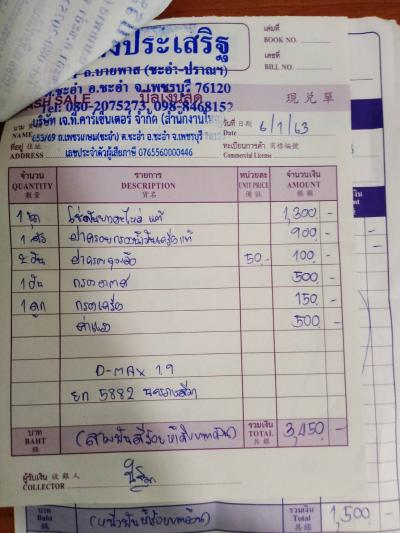 ประเสริฐ
เล่มที่
BOOK NO.
ถ.บายพาส (ชะอำ-ปราณฯ)
ต.ชะอำ อ.ชะอำ จ.เพชรบุรี 76120
เลขที่
BILL NO.
Tel: 080-2075273, 098-8468152
CASH SALE บิลเงินสด 現兌單
NAME บริษัท เจ.ที.คาร์เซ็นเตอร์ จำกัด (สำนักงานใหญ่)
วันที่ 日期
Date 6/1/63
ที่อยู่ 住址 653/69 ถ.เพชรเกษม(ชะอำ) ต.ชะอำ อ.ชะอำ จ.เพชรบุรี
ADDRESS เลขประจำตัวผู้เสียภาษี 0765560000446
ทะเบียนการค้า 商標編號
Commercial License
จำนวน รายการ หน่วยละ จำนวนเงิน
QUANTITY DESCRIPTION UNIT PRICE AMOUNT
數量 貨名 備註 銀額
1 แท้ 1,300 -
1 900 -
2 50 - 100 -
1 กรองอากาศ 500 -
1 ลูก กรองเครื่อง 150 -
ค่าแรง 500 -
D-MAX 1.9
ยก 5882 นครราชสีมา
บาท
BAHT
銖
(สามพันสี่ร้อยห้าสิบบาทถ้วน)
รวมเงิน
TOTAL
共銀
3,450 -
ผู้รับเงิน 收銀人
COLLECTOR
บาท
Baht
銖
(หนึ่งพันห้าร้อยบาทถ้วน)
รวมเงิน
Total
共銀
1,500 -